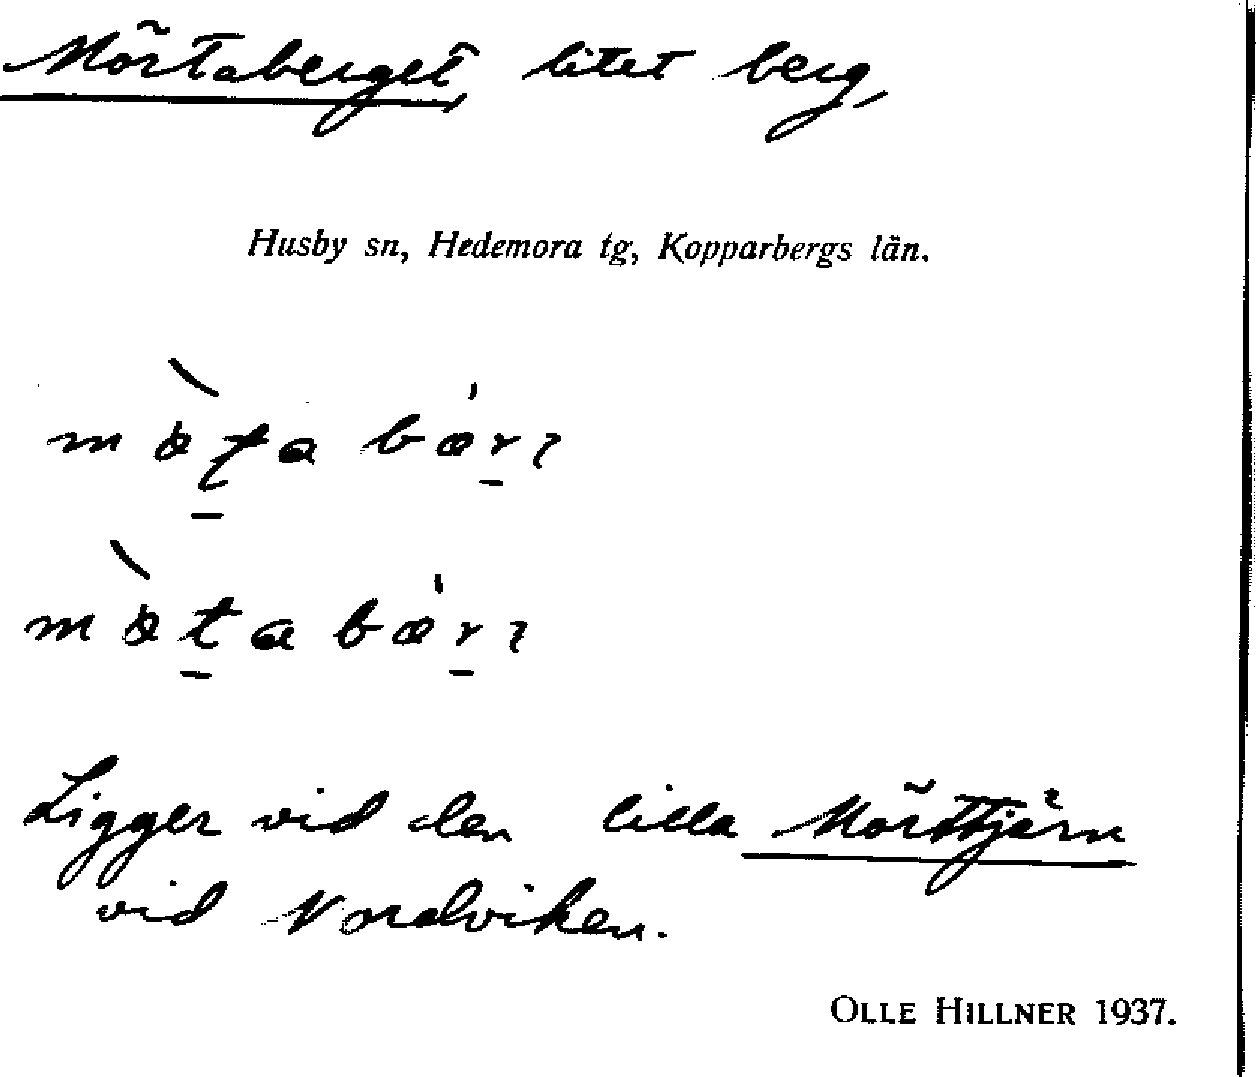 Mörtaberget, litet berg,
Husby sn, Hedemora tg, Kopparbergs län.
Ligger vid den lilla Mörttjärn
vid Nordviken.
OLLE HILLNER 1937.